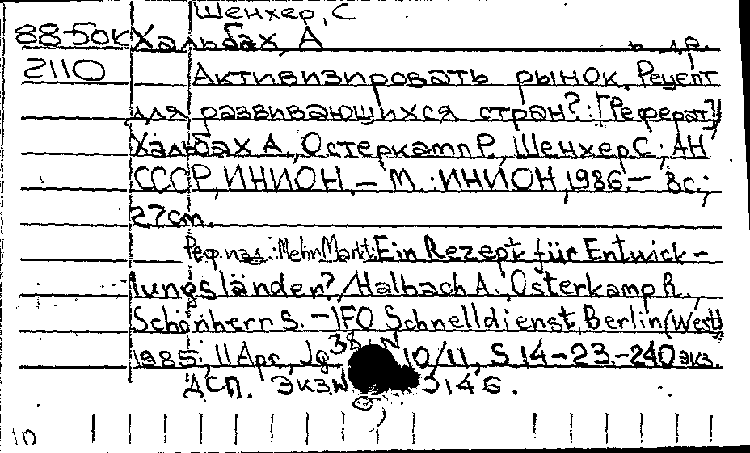 Шенхер, С
88-50к Хальбах, А
и др.
2110 Активизировать рынок. Рецепт
для развивающихся стран?: [Реферат]/
Хальбах А., Остеркамп Р., Шенхер С.; АН
СССР, ИНИОН. – М.: ИНИОН, 1986. – 8с.;
27cm.
Реф. на : Mehr Markt: Ein Rezept für Entwick-
lungsländer? / Halbach A., Osterkamp R.,
Schönherr S. – IFO Schnelldienst, Berlin (West)
1985, 11 Apr., Jg 38, N 10/11, S 14-23. – 240 экз.
ДСП. Экз N 3146.
10